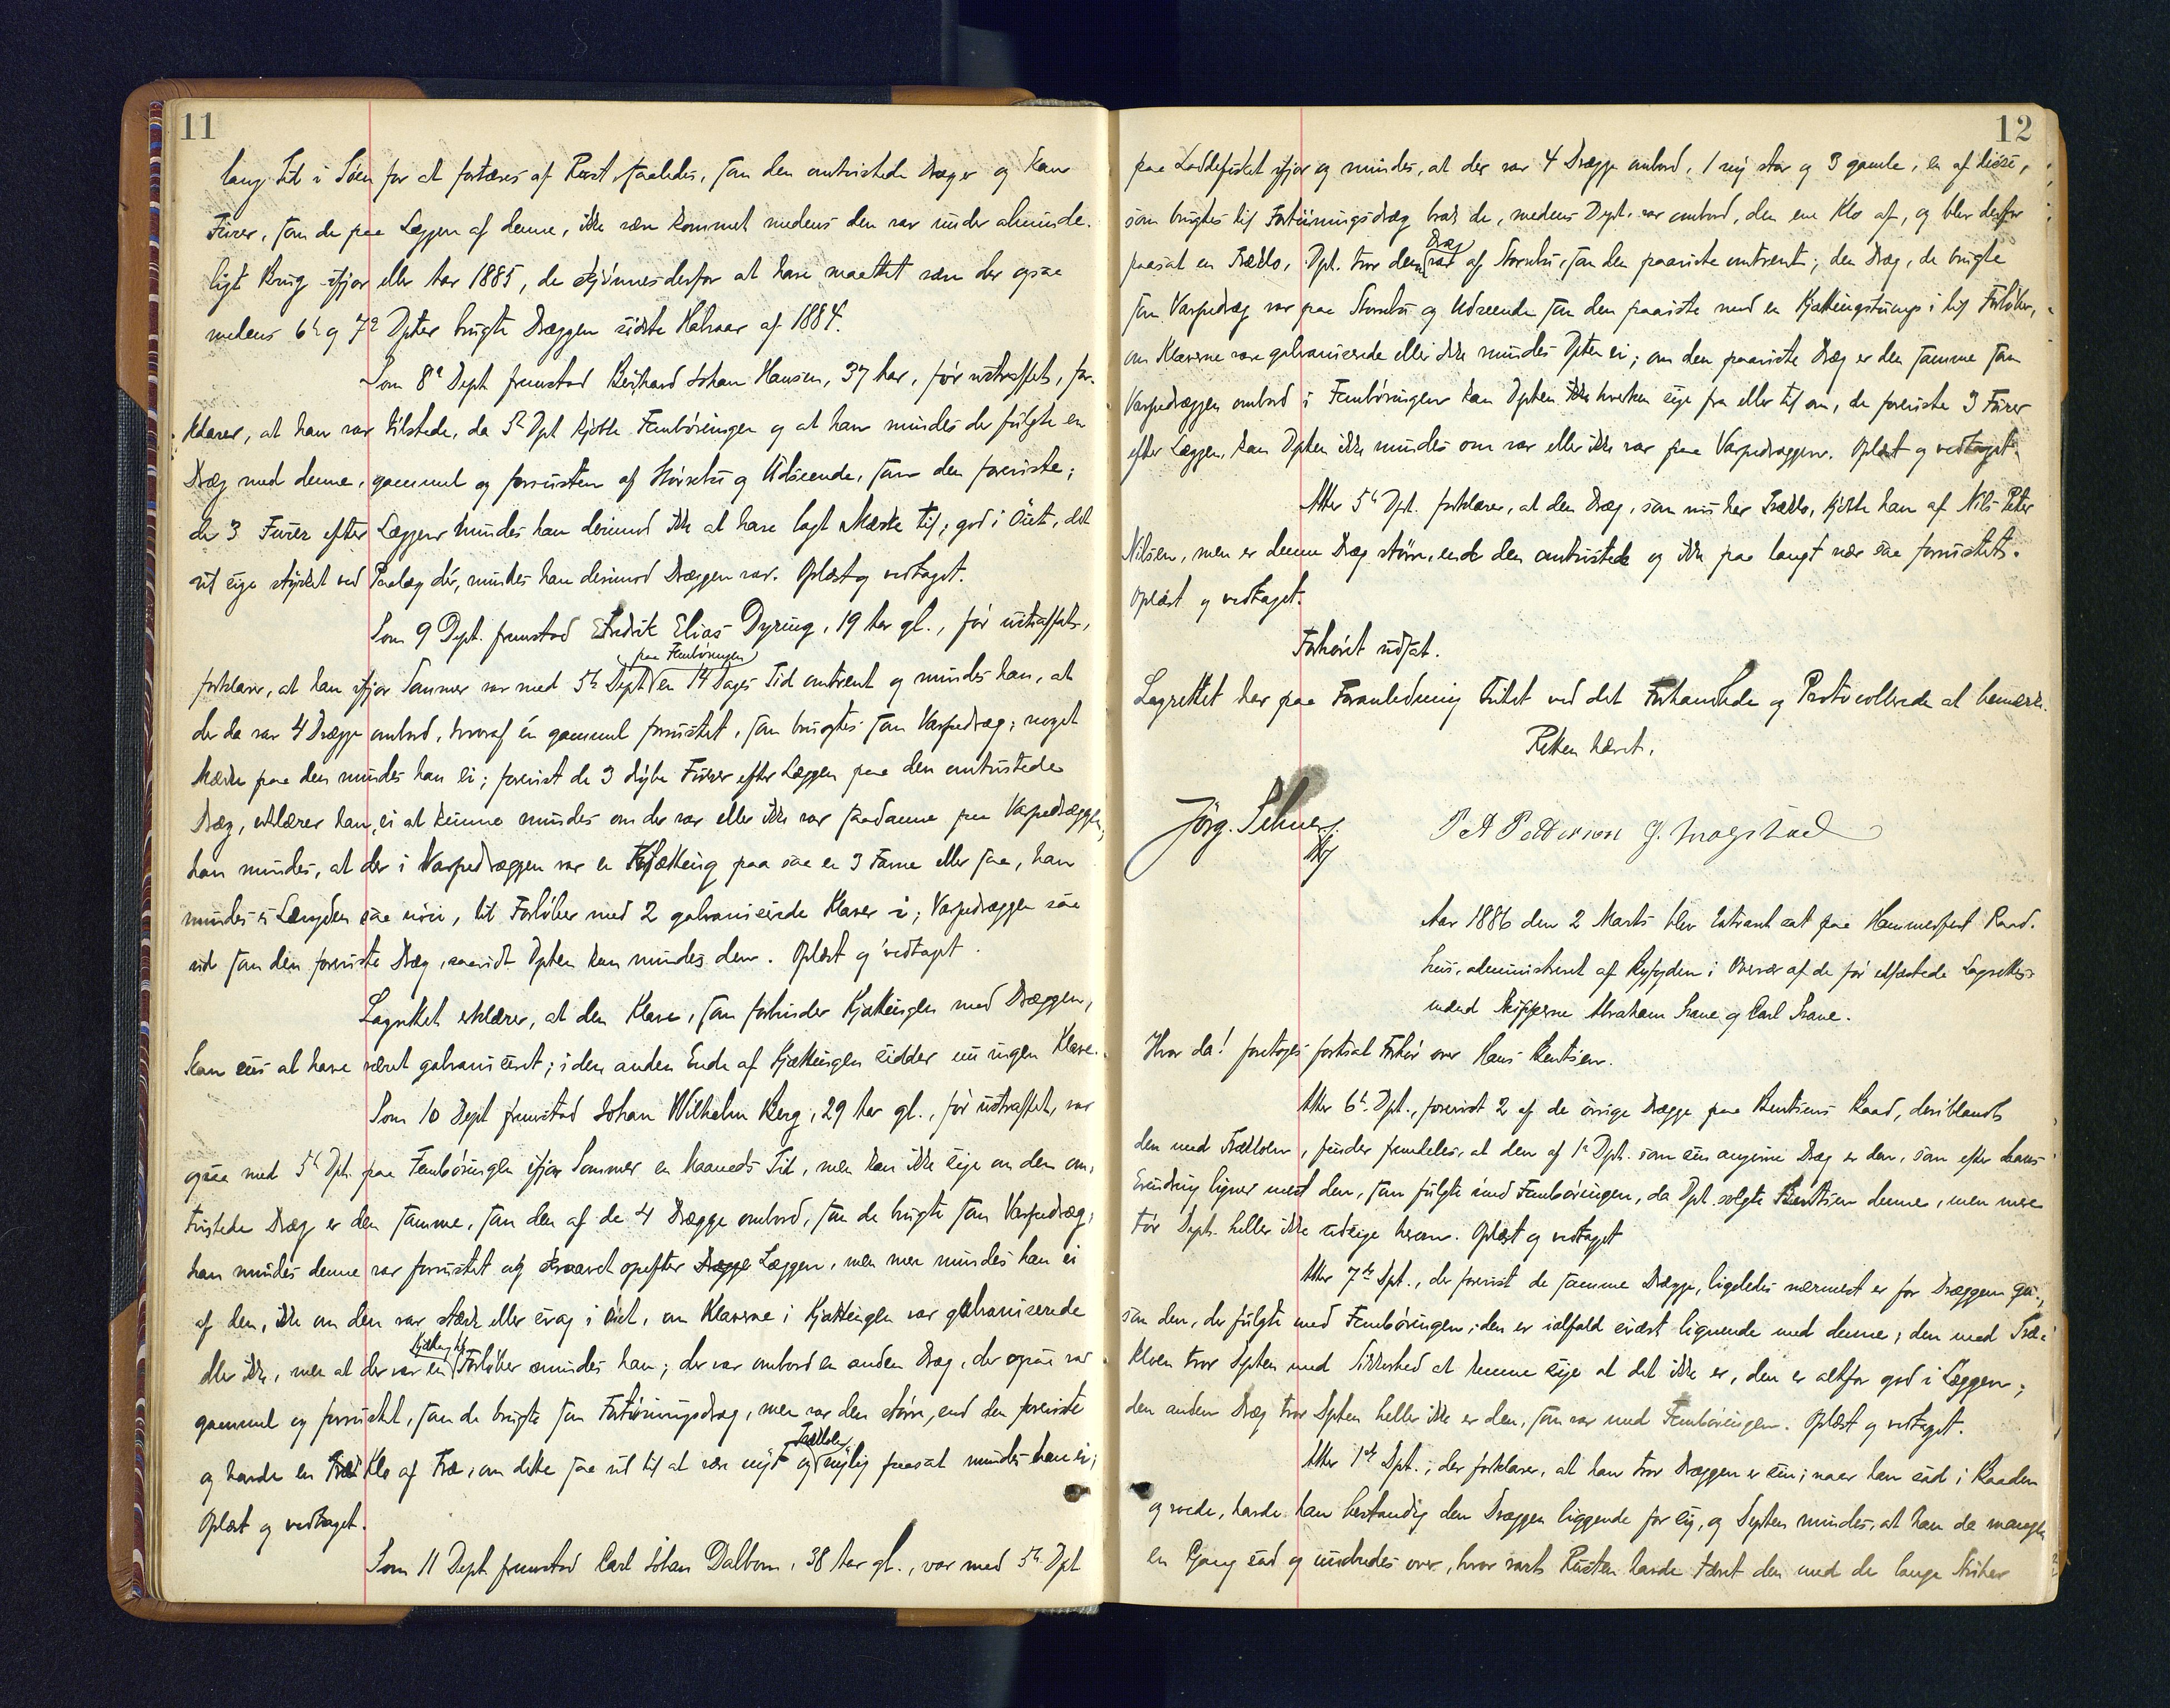 11
lang Tid i Söen for at fortæres af Rust, saaledes, som den omtvistede Dræg er og kan
Furer, som de paa Læggen af denne, ikke være kommet medens den var under alminde-
ligt Brug ifjor eller Aar 1885, de skjönnes derfor at have maattet være der ogsaa
medens 6te og 7de Dpter brugte Dræggen sidste Halvaar af 1884.
Som 8de Dept fremstod Bernhard Johan Hansen, 37 Aar, før ustraffet, for-
klarer, at han var tilstede, da 5te Dpt kjöbte Fembøringen og at han mindes der fulgte en
Dræg med denne, gammel og forrusten af Størrelse og Udseende, som den foreviste;
de 3 Furer efter Læggen mindes han derimod ikke at have lagt Mærke til; god i Öiet, det
vil sige stykket ved Paalæg dér, mindes han derimod Dræggen var. Oplæst og vedtaget.
Som 9 Dept. fremstod Fredrik Elias Dyring, 19 Aar gl., før ustraffet,
paa Fembøringen
forklarer, at han ifjor Sommer var med 5te Dept en 14 Dages Tid omtrent og mindes han, at
der da var 4 Drægge ombord, hvoraf én gammel forrustet, som brugtes som Varpedræg; noget
Mærke paa den mindes han ei; forevist de 3 dybe Furer efter Læggen paa den omtvistede
Dræg, erklærer han, ei at kunne mindes om der var eller ikke var saadanne paa Varpedræggen,
han mindes, at der i Varpedræggen var en Kjætting paa saa en 3 Favne eller saa, han
mindes ei Længden saa nöie, til Forløber med 2 galvaniserede Klaver i; Varpedræggen saa
ud som den foreviste Dræg, saavidt Dpten kan mindes den. Oplæst og vedtaget.
Lagrettet erklærer, at den Klave, som forbinder Kjættingen med Dræggen,
kan sees at have været galvaniseret; i den anden Ende af Kjættingen sidder nu ingen Klave.
Som 10 Dept fremstod Johan Wilhelm Berg, 29 Aar gl., før ustraffet, var
ogsaa med 5te Dpt. paa Fembøringen ifjor Sommer en Maaneds Tid, men kan ikke sige om den om-
tvistede Dræg er den samme, som den af de 4 Drægge ombord, som de brugte som Varpedræg,
han mindes denne var forrustet og skaaret opefter Drægge Læggen, men mer mindes han ei
af den, ikke om den var stærk eller svag i öiet, om Klaverne i Kjættingen var galvaniserede
Kjætting til
eller ikke, men at der var en Forløber mindes han; der var ombord en anden Dræg, der ogsaa var
gammel og forrustet, som de brugte som Fortøiningsdræg, men var den større, end den foreviste
Trækloen
og havde en Træ Klo af Træ, om dette saa ud til at være nyt og nylig paasat mindes han ei;
Oplæst og vedtaget.
Som 11 Dept. fremstod Carl Johan Dalbom, 38 Aar gl., var med 5te Dpt
12
paa Loddefisket ifjor og mindes, at der var 4 Drægge ombord, 1 ny stor og 3 gamle; en af disse,
som brugtes til Fortöiningsdræg brak de, medens Dept. var ombord, den ene Klo af, og blev derfor
Dræg
paasat en Træklo, Dpt. tror den var af Størrelse, som den paaviste omtrent; den Dræg, de brugte
som Varpedræg var paa Størrelse og Udseende som den paaviste med en Kjættingstump i til Forløber,
om Klaverne vare galvaniserede eller ikke mindes Dpten ei; om den paaviste Dræg er den samme som
Varpedræggen ombord i Fembøringen kan Dpten ikke hverken sige fra eller til om, de foreviste 3 Furer
efter Læggen, kan Dpten ikke mindes om var eller ikke var paa Varpedræggen. Oplæst og vedtaget.
Atter 5te Dpt. forklarer, at den Dræg, som nu har Træklo, kjöbte han af Nils Peter
Nilsen, men er denne Dræg større, end den omtvistede og ikke paa langt nær saa forrustet.
Oplæst og vedtaget.
Forhøret udsat.
Lagrettet har paa Foranledning Intet ved det Forhandlede og Protocollerede at bemærke.
Retten hævet.
Jörg. Schne
P A Pedersen J. Mogstad
Aar 1886 den 2 Marts blev Extraret sat paa Hammerfest Raad-
hus, administreret af Byfogden i Overvær af de før edfæstede Lagrettes-
mænd Skipperne Abraham Krane og Carl Krane.
Hvor da! foretoges fortsat Forhör over Hans Bentsen.
Atter 6te Dpt., forevist 2 af de øvrige Drægge paa Bentsens Baad, deriblandt
den med Trækloen, finder fremdeles, at den af 1ste Dpt. som sin angivne Dræg er den, som efter hans
Erindring ligner mest den, som fulgte med Fembøringen, da Dpt. solgte Bentsen denne, men mere
tör Dept. heller ikke udsige herom. Oplæst og vedtaget
Atter 7de Dpt., der forevist de samme Drægge, ligeledes nærmest er for Dræggen
som den, der fulgte med Fembøringen; den er ialfald svært lignende med denne; den med Træ-
kloen tror Dpten med Sikkerhed at kunne sige at det ikke er, den er altfor god i Læggen;
den anden Dræg tror Dpten heller ikke er den, som var med Fembøringen. Oplæst og vedtaget.
Atter 1ste Dpt.; der forklarer, at han tror Dræggen er sin; naar han sad i Baaden
og roede, havde han bestandig den Dræggen liggende for sig, og Dpten mindes, at han da mangen
en Gang sad og undredes over, hvor svært Rusten havde tæret den med de lange Striber